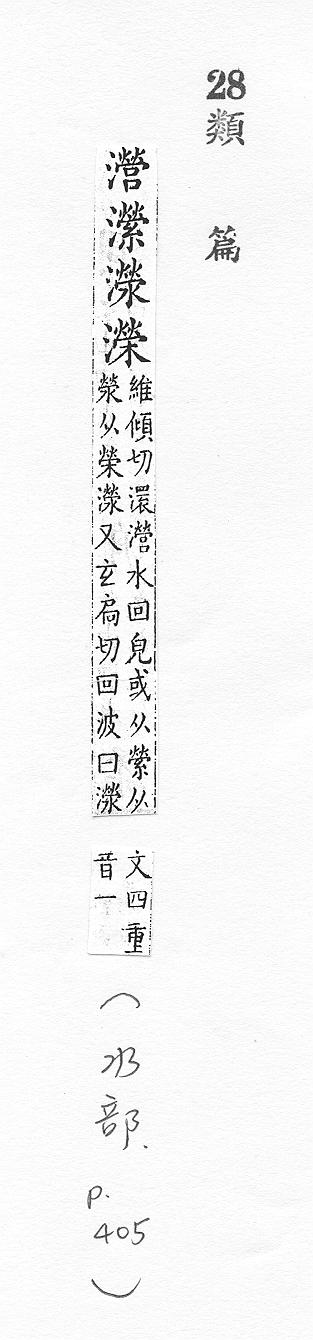 28類篇
濴瀠濚
維傾切濴水回皃或从縈从
滎从榮濚又玄扃切回波曰濚
文四重
音一
(水部. p.405)